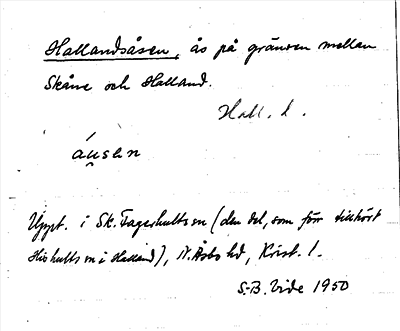 Hallandsåsen, ås på gränsen mellan
Skåne och Halland.
Hall. l.
áu̯sen
Uppt. i Sk. Fagerhults sn (den del, som förr tillhört
Hishults sn i Halland), N. Åsbo hd, Krist. l.
S.-B. Vide 1950